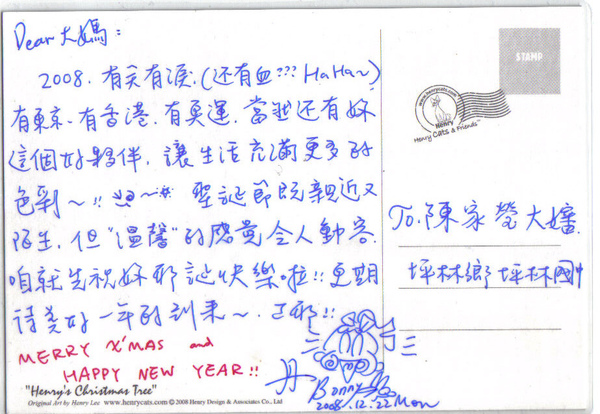 Dear 大媽:
2008. 有笑有淚.(还有血??? HaHa~)
有東京、有香港、有奧運、當然还有妳
這個好夥伴, 讓生活充滿更多的
色彩~!! 聖誕節既親近又
陌生, 但"溫馨"的感覺令人動容.
咱就先祝妳耶誕快樂啦!! 更期
待美好一年的到來~. 耶!!
MERRY X'MAS and
HAPPY NEW YEAR!!
丹 Bonny
2008.12.22 Mon
"Henry's Christmas Tree"
Original Art by Henry Lee www.henrycats.com © 2008 Henry Design & Associates Co., Ltd
STAMP
www.henrycats.com
Henry
Henry Cats & Friends™
To: 陳家瑩大嬸
坪林鄉坪林國中